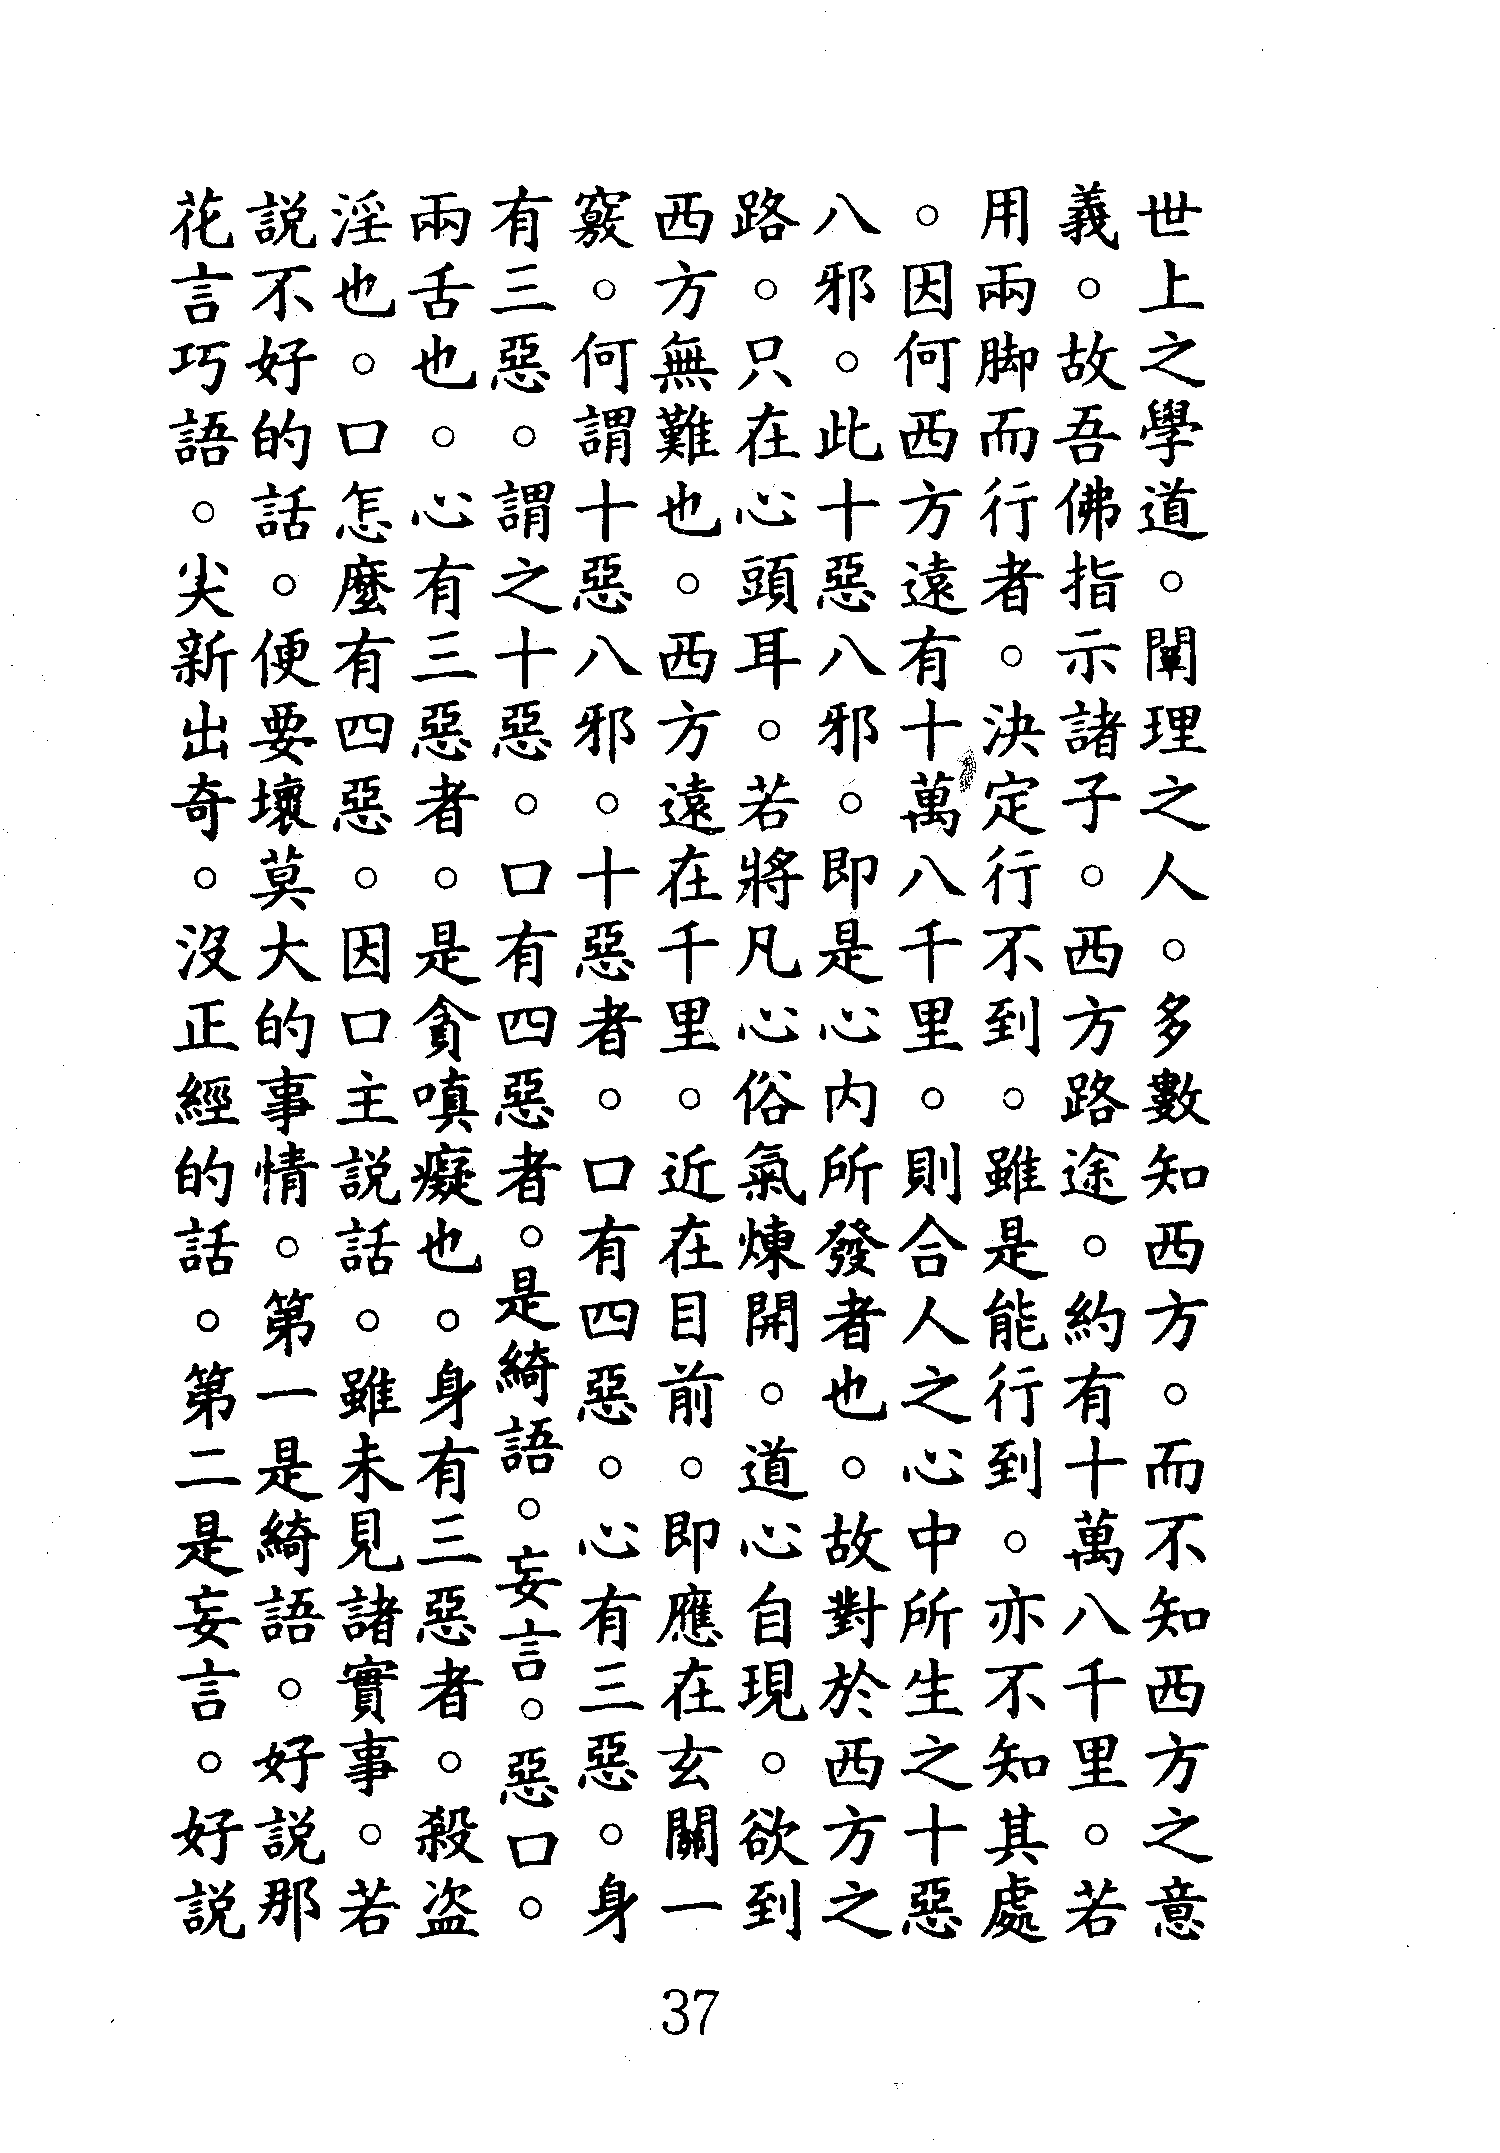 世上之學道。闡理之人。多數知西方。而不知西方之意
義。故吾佛指示諸子。西方路途。約有十萬八千里。若
用兩脚而行者。決定行不到。雖是能行到。亦不知其處
。因何西方遠有十萬八千里。則合人之心中所生之十惡
八邪。此十惡八邪。即是心內所發者也。故對於西方之
路。只在心頭耳。若將凡心俗氣煉開。道心自現。欲到
西方無難也。西方遠在千里。近在目前。即應在玄關一
竅。何謂十惡八邪。十惡者。口有四惡。心有三惡。身
有三惡。謂之十惡。口有四惡者。是綺語。妄言。惡口。
兩舌也。心有三惡者。是貪嗔癡也。身有三惡者。殺盗
淫也。口怎麼有四惡。因口主説話。雖未見諸實事。若
説不好的話。便要壞莫大的事情。第一是綺語。好説那
花言巧語。尖新出奇。沒正經的話。第二是妄言。好説
37